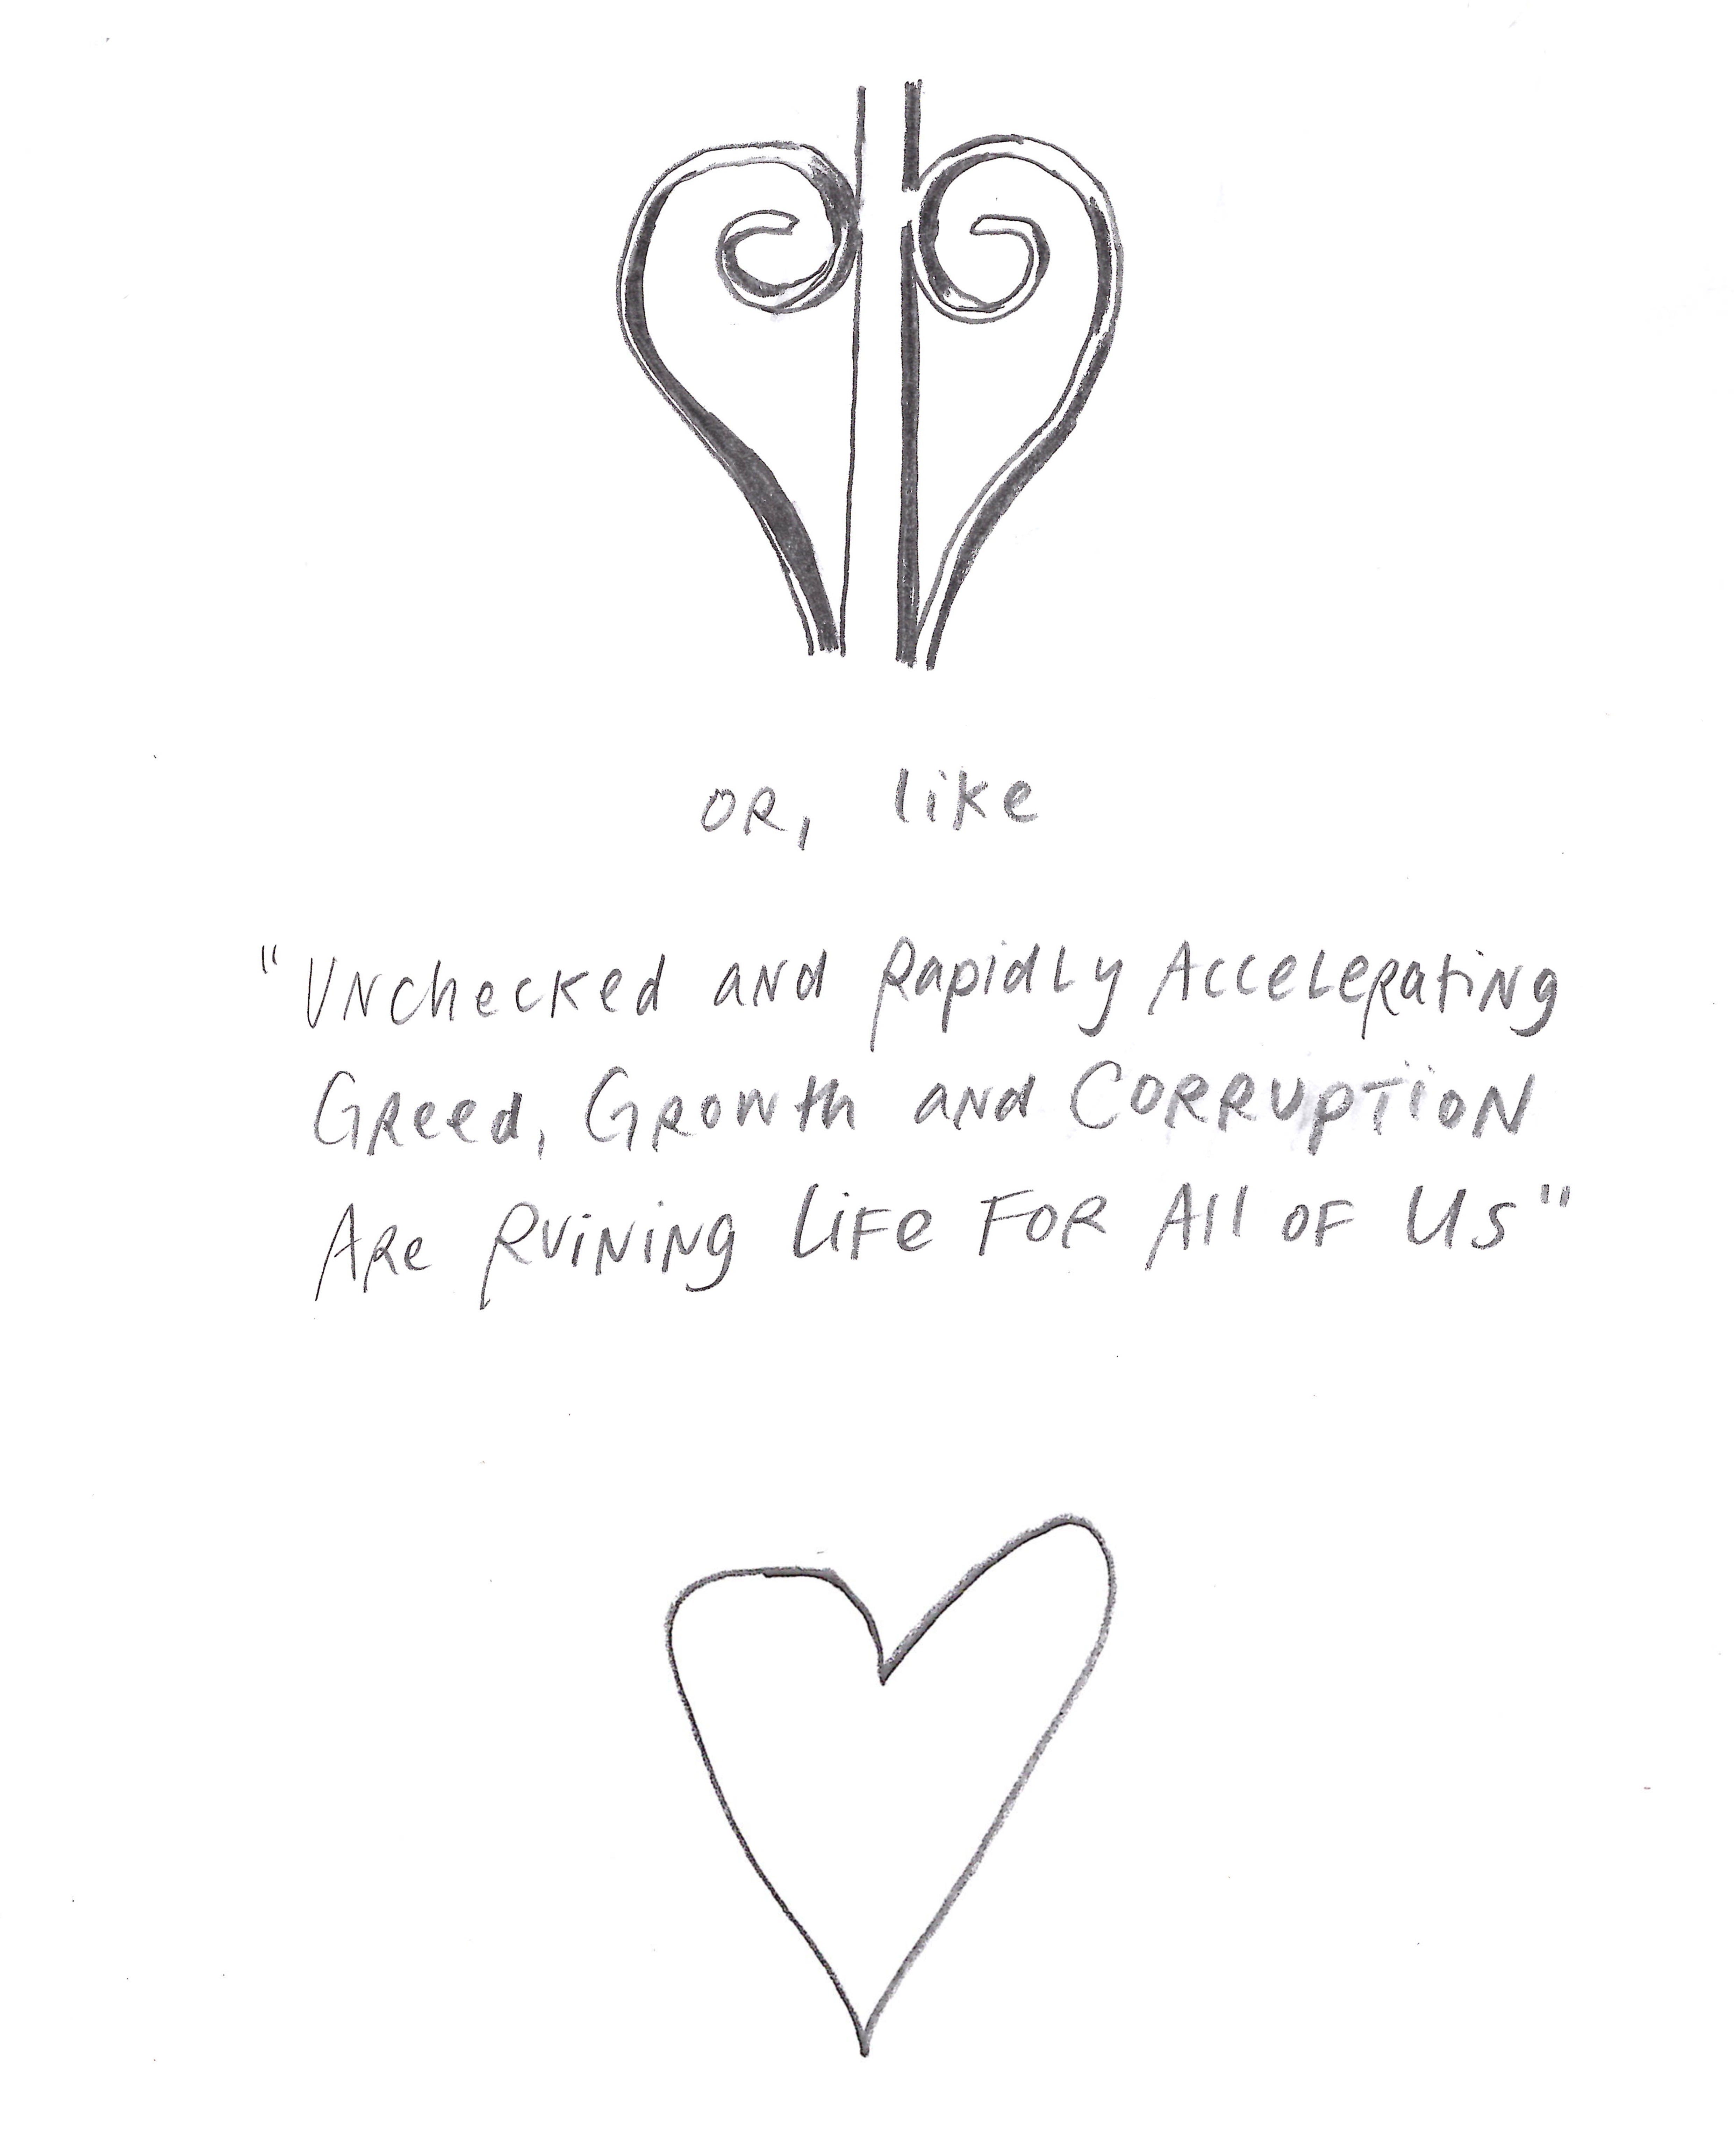 OR, like
"Unchecked and Rapidly Accelerating
Greed, Growth and Corruption
Are Ruining Life For All of Us"